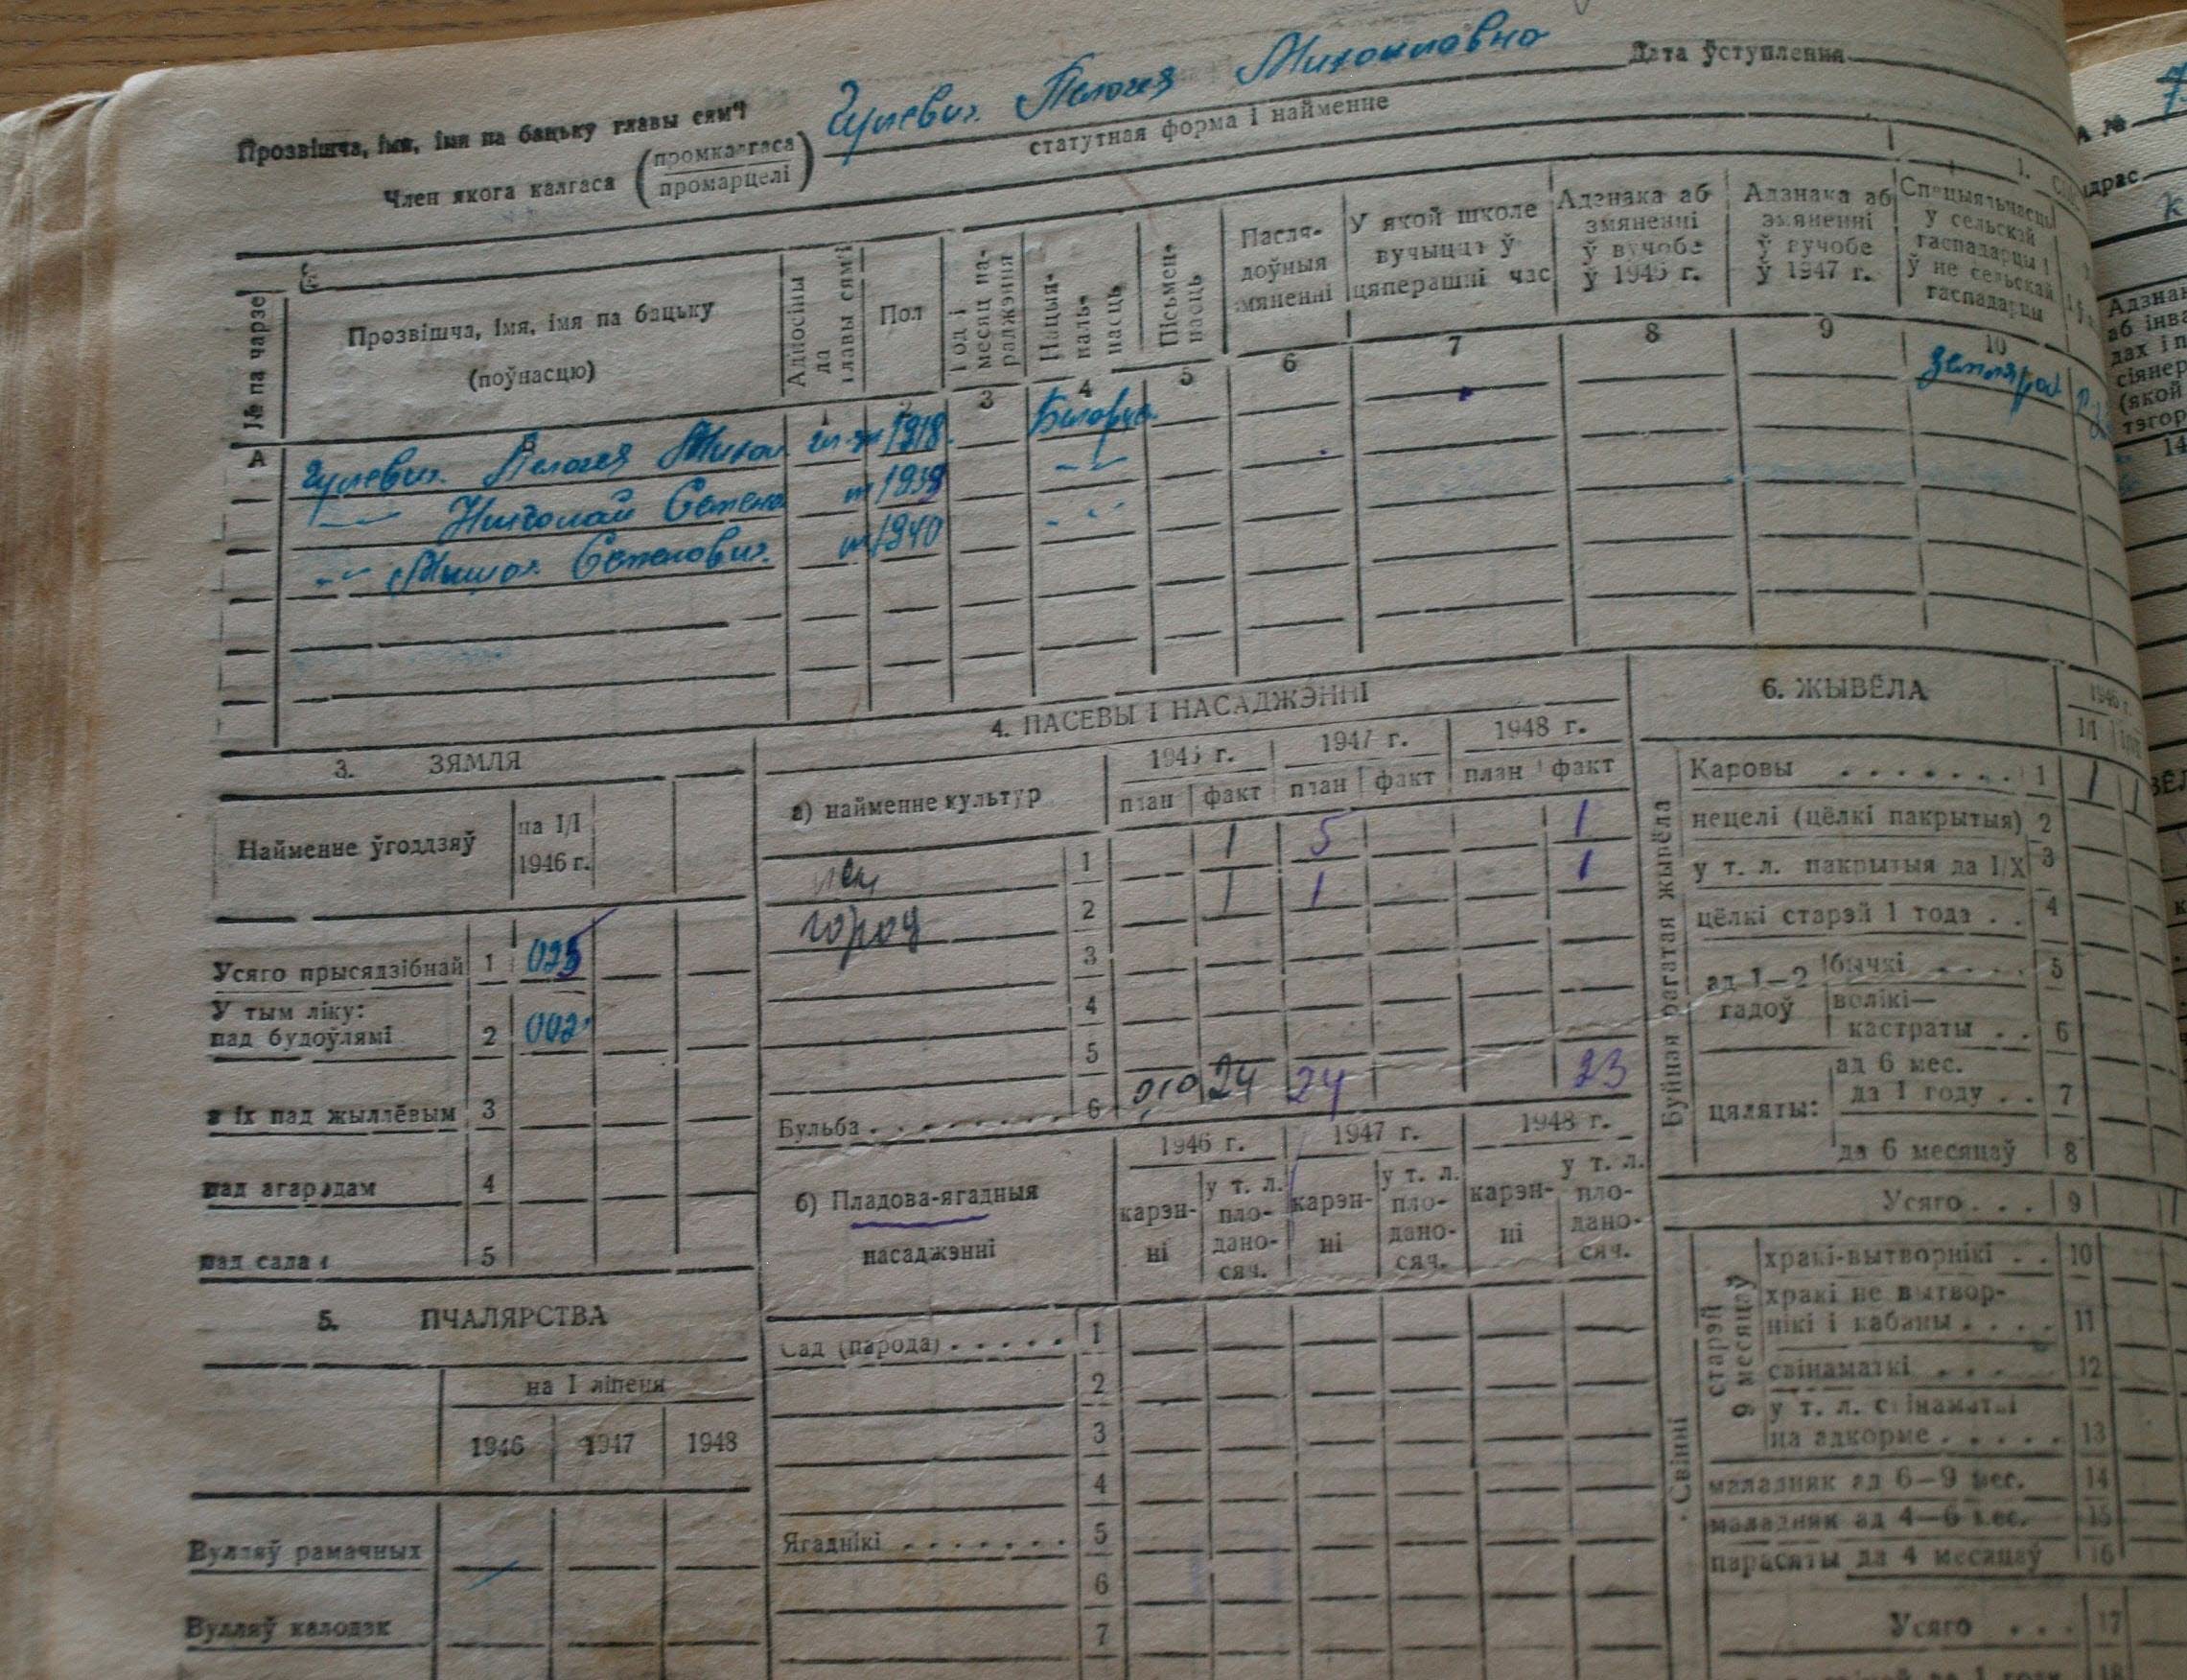 Прозвішча, імя, імя па бацьку главы сям'і Гулевич Пелогея Михайловна
Дата ўступлення
Член якога калгаса (промкалгаса / промарцелі)
статутная форма і найменне
№ па чарзе
Прозвішча, імя, імя па бацьку
(поўнасцю)
Адносіны да главы сям'і
Пол
Год і месяц нараджэння
Нацыянальнасць
Пісьменнасць
Пасля-
доўныя
змяненні
У якой школе
вучыцца ў
цяперашні час
Адзнака аб
змяненні
ў вучобе
ў 1946 г.
Адзнака аб
змяненні
ў вучобе
ў 1947 г.
Спецыяльнасць
у сельскай
гаспадарцы і
ў не сельскай
гаспадарцы
А 1 2 3 4 5 6 7 8 9 10
Гулевич Пелогея Михай 1918
Николай Семено 1939
1940
3. ЗЯМЛЯ
Найменне ўгоддзяў
на I/I
1946 г.
Усяго прысядзібнай 1 025
У тым ліку:
пад будоўлямі 2 002
з іх пад жыллёвым 3
пад агародам 4
пад садам 5
5. ПЧАЛЯРСТВА
на I ліпеня
1946 1947 1948
Вулляў рамачных
Вулляў калодак
4. ПАСЕВЫ І НАСАДЖЭННІ
а) найменне культур
1946 г. 1947 г. 1948 г.
план факт план факт план факт
1 1 5 1
город 2 1 1 1
3
4
5
Бульба 6 24 24 23
б) Пладова-ягадныя
насаджэнні
1946 г. 1947 г. 1948 г.
карэн-
ні
у т. л.
пло-
дано-
сяч.
карэн-
ні
у т. л.
пло-
дано-
сяч.
карэн-
ні
у т. л.
пло-
дано-
сяч.
Сад (парода) 1
2
3
4
Ягаднікі 5
6
7
6. ЖЫВЁЛА
1946 г.
I/I
Буйная рагатая жывёла
Каровы 1 1
нецелі (цёлкі пакрытыя) 2
у т. л. пакрытыя да I/X 3
цёлкі старэй 1 года 4
ад 1—2
гадоў
бычкі 5
волікі—
кастраты 6
цяляты:
ад 6 мес.
да 1 году 7
да 6 месяцаў 8
Усяго 9
Свінні
старэй 9 месяцаў
хракі-вытворнікі 10
хракі не вытвор-
нікі і кабаны 11
свінаматкі 12
у т. л. свінаматкі
на адкорме 13
маладняк ад 6—9 мес. 14
маладняк ад 4—6 мес. 15
парасяты да 4 месяцаў 16
Усяго 17